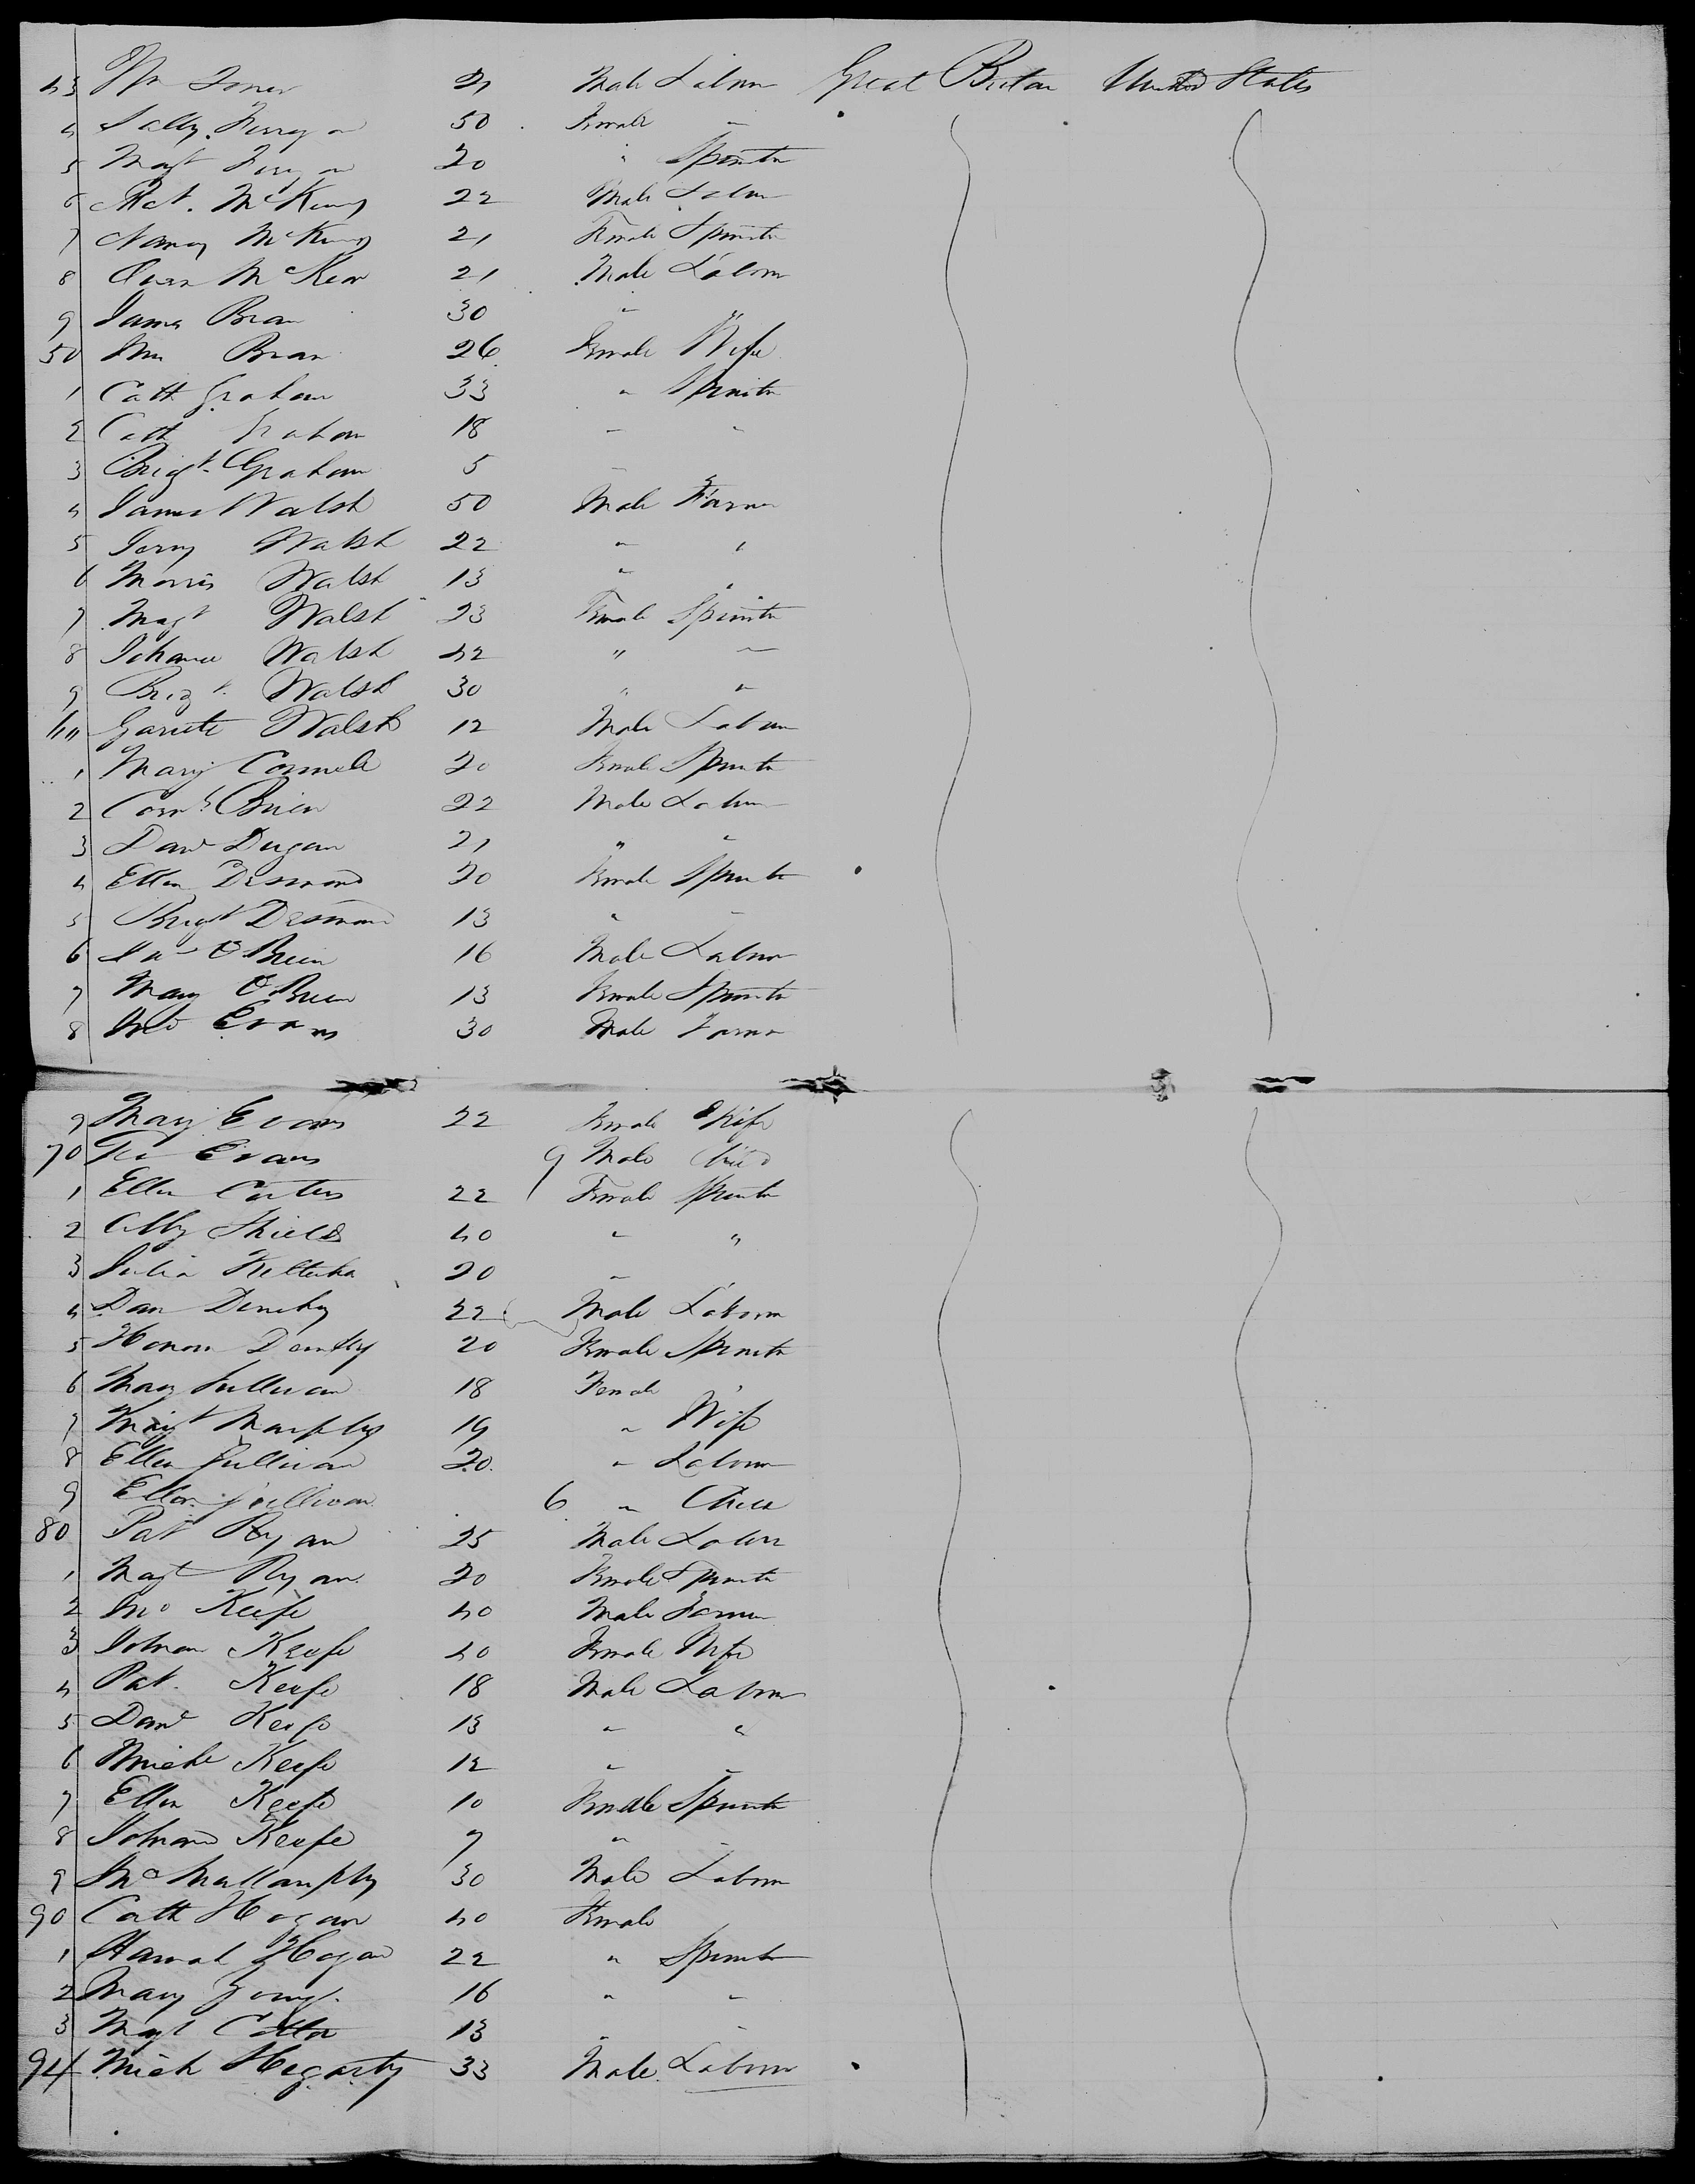 43 Wm Jones 21 Male Labour Great Britain United States
4 Sally 50 Female "
5 Magt 20 " Spinster
6 Pat. McKenny 22 Male Labour
7 Nancy McKenny 21 Female Spinster
8 Owen McKeon 21 Male Labour
9 James 30 " "
50 26 Female Wife
1 Cath Graham 33 " Spinster
2 Cath Graham 18 " "
3 Brigt Graham 5 "
4 James Walsh 50 Male Farmer
5 Jerry Walsh 22 " "
6 Morris Walsh 13 " "
7 Magt Walsh 23 Female Spinster
8 Johanna Walsh 42 " "
9 Brigt Walsh 30 " "
60 Garrett Walsh 12 Male Labour
1 Mary Connell 20 Female Spinster
2 Corns Brien 22 Male Labour
3 Danl Dugan 21 " "
4 Ellen Desmond 20 Female Spinster
5 Brigt Desmond 13 " "
6 O'Brien 16 Male Labour
7 Mary O'Brien 13 Female Spinster
8 Evans 30 Male Farmer
9 Mary Evans 22 Female Wife
70 Evans 9 Male Child
1 Ellen 22 Female Spinster
2 Abby Shields 40 " "
3 Julia 20 " "
4 Dan Denehy 22 Male Labour
5 Honora Denehy 20 Female Spinster
6 Mary Sullivan 18 Female "
7 Magt Murphy 19 " Wife
8 Ellen Sullivan 20 " Labour
9 Ellen Sullivan 6 " Child
80 Pat Ryan 25 Male Labour
1 Magt Ryan 20 Female Spinster
2 Jno Keefe 40 Male Farmer
3 Johan Keefe 40 Female Wife
4 Pat. Keefe 18 Male Labour
5 Danl Keefe 13 " "
6 Michl Keefe 12 " "
7 Ellen Keefe 10 Female Spinster
8 Johana Keefe 7 " "
9 30 Male Labour
90 Cath Hogan 40 Female
1 Hannah Hogan 22 " Spinster
2 Mary 16 " "
3 Magt 13 " "
94 Mich Hegarty 33 Male Labour